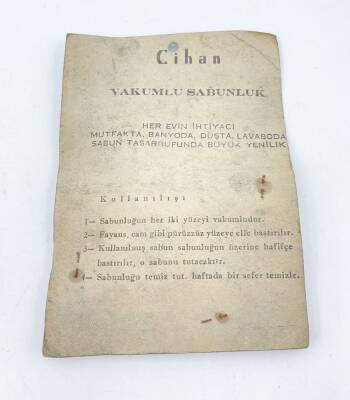 Cihan
VAKUMLU SABUNLUK
HER EVİN İHTİYACI
MUTFAKTA, BANYODA, DUŞTA, LAVABODA
SABUN TASARRUFUNDA BÜYÜK YENİLİK
Kullanılışı
1— Sabunluğun her iki yüzeyi vakumludur.
2— Fayans, cam gibi pürüzsüz yüzeye elle bastırılır.
3— Kullanılmış sabun sabunluğun üzerine hafifçe
bastırılır, o sabunu tutacaktır.
4— Sabunluğu temiz tut. haftada bir sefer temizle.